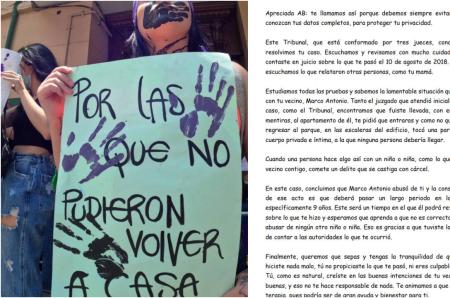 POR LAS
QUE NO
PUDIERON
VOLVER
A CASA
Apreciada AB: te llamamos así porque debemos siempre evitar
conozcan tus datos completos, para proteger tu privacidad.
Este Tribunal, que está conformado por tres jueces,
resolvimos tu caso. Escuchamos y revisamos con mucho
contaste en juicio sobre lo que te pasó el 10 de agosto de 2018.
escuchamos lo que relataron otras personas, como tu mamá.
Estudiamos todas las pruebas y sabemos la lamentable situación
con tu vecino, Marco Antonio. Tanto el juzgado que atendió
caso, como el Tribunal, encontramos que fuiste llevada, con
mentiras, al apartamento de él, te pidió que entraras y como no
regresar al parque, en las escaleras del edificio, tocó una
cuerpo privada e íntima, a la que ninguna persona debería llegar.
Cuando una persona hace algo así con un niño o niña, como lo
vecino contigo, comete un delito que se castiga con cárcel.
En este caso, concluimos que Marco Antonio abusó de ti y la
de ese acto es que deberá pasar un largo periodo en
específicamente 9 años. Este será un tiempo en el que él podrá
sobre lo que te hizo y esperamos que aprenda a que no es
abusar de ningún otro niño o niña. Eso es gracias a que tuviste
de contar a las autoridades lo que te ocurrió.
Finalmente, queremos que sepas y tengas la tranquilidad de
hiciste nada malo, tú no propiciaste lo que te pasó, ni eres
Tú, como es natural, creíste en las buenas intenciones de tu
buenas, y eso no te hace responsable de nada. Te animamos a que
terapia, pues podría ser de gran ayuda y bienestar para ti.